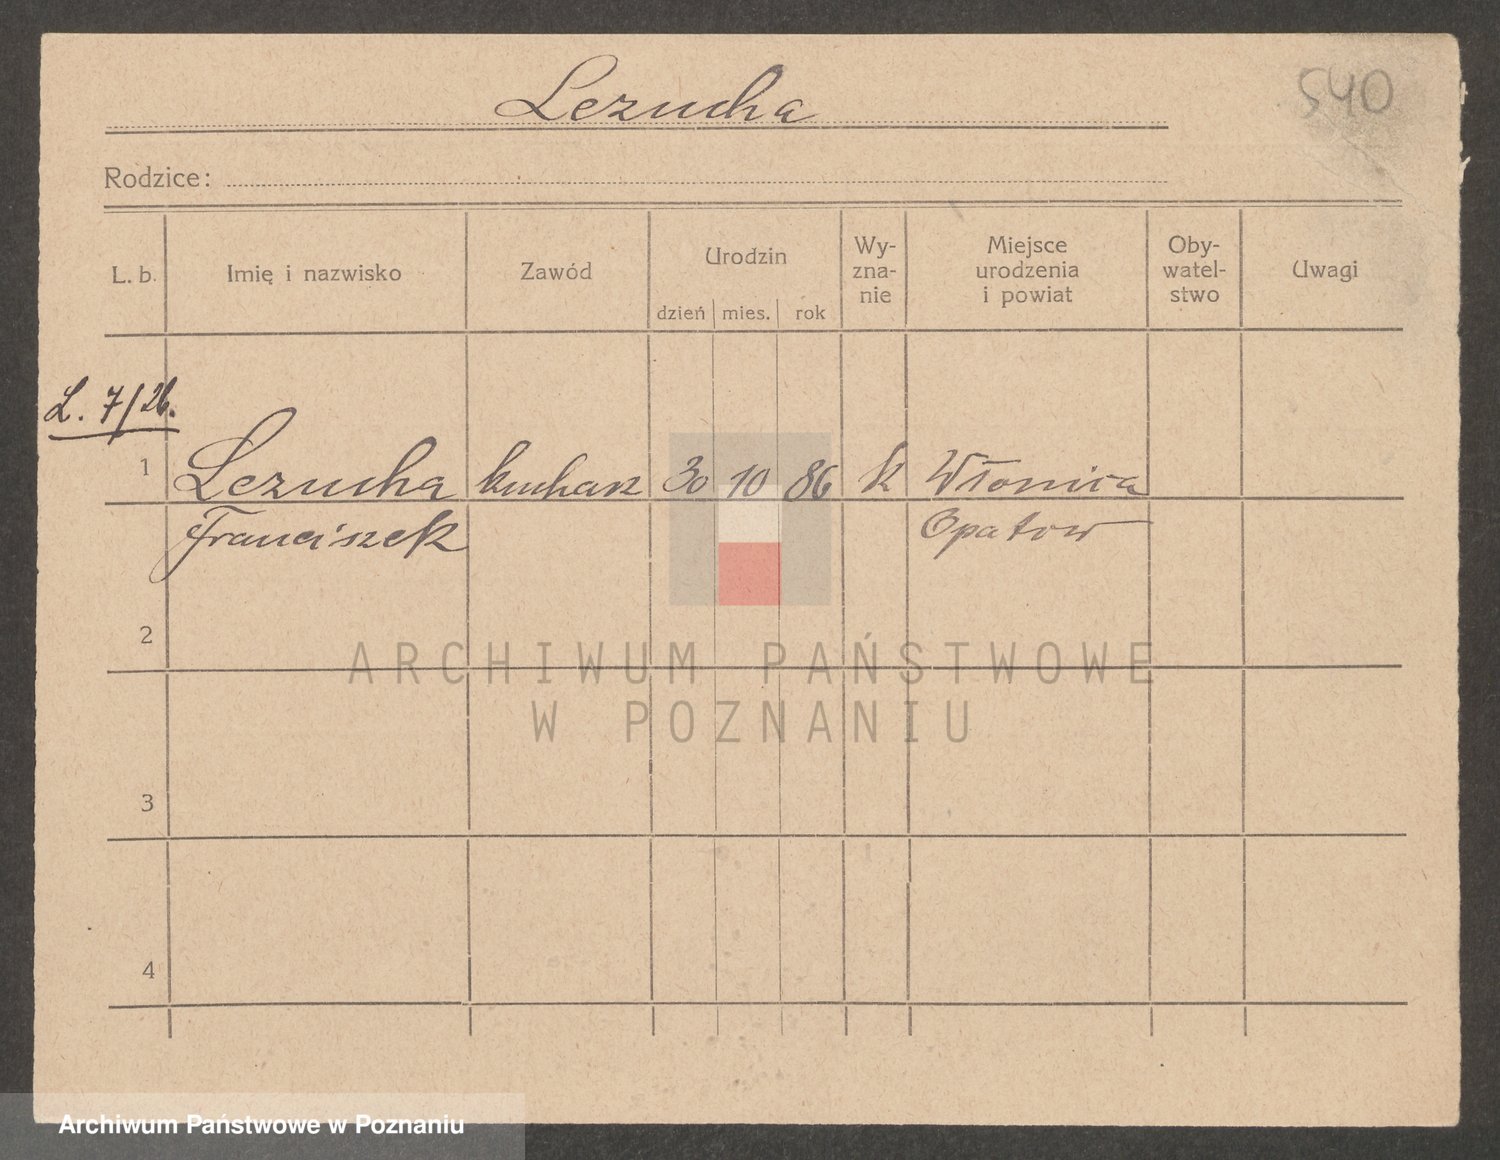 Lezucha
540
Rodzice:
L. b.
Imię i nazwisko
Zawód
Urodzin
dzień mies. rok
Wy-
zna-
nie
Miejsce
urodzenia
i powiat
Oby-
watel-
stwo
Uwagi
L. 7/26.
1 Lezucha kucharz 30 10 86 k Włonica
Franciszek Opatow
2
3
4
ARCHIWUM PAŃSTWOWE
W POZNANIU
Archiwum Państwowe w Poznaniu